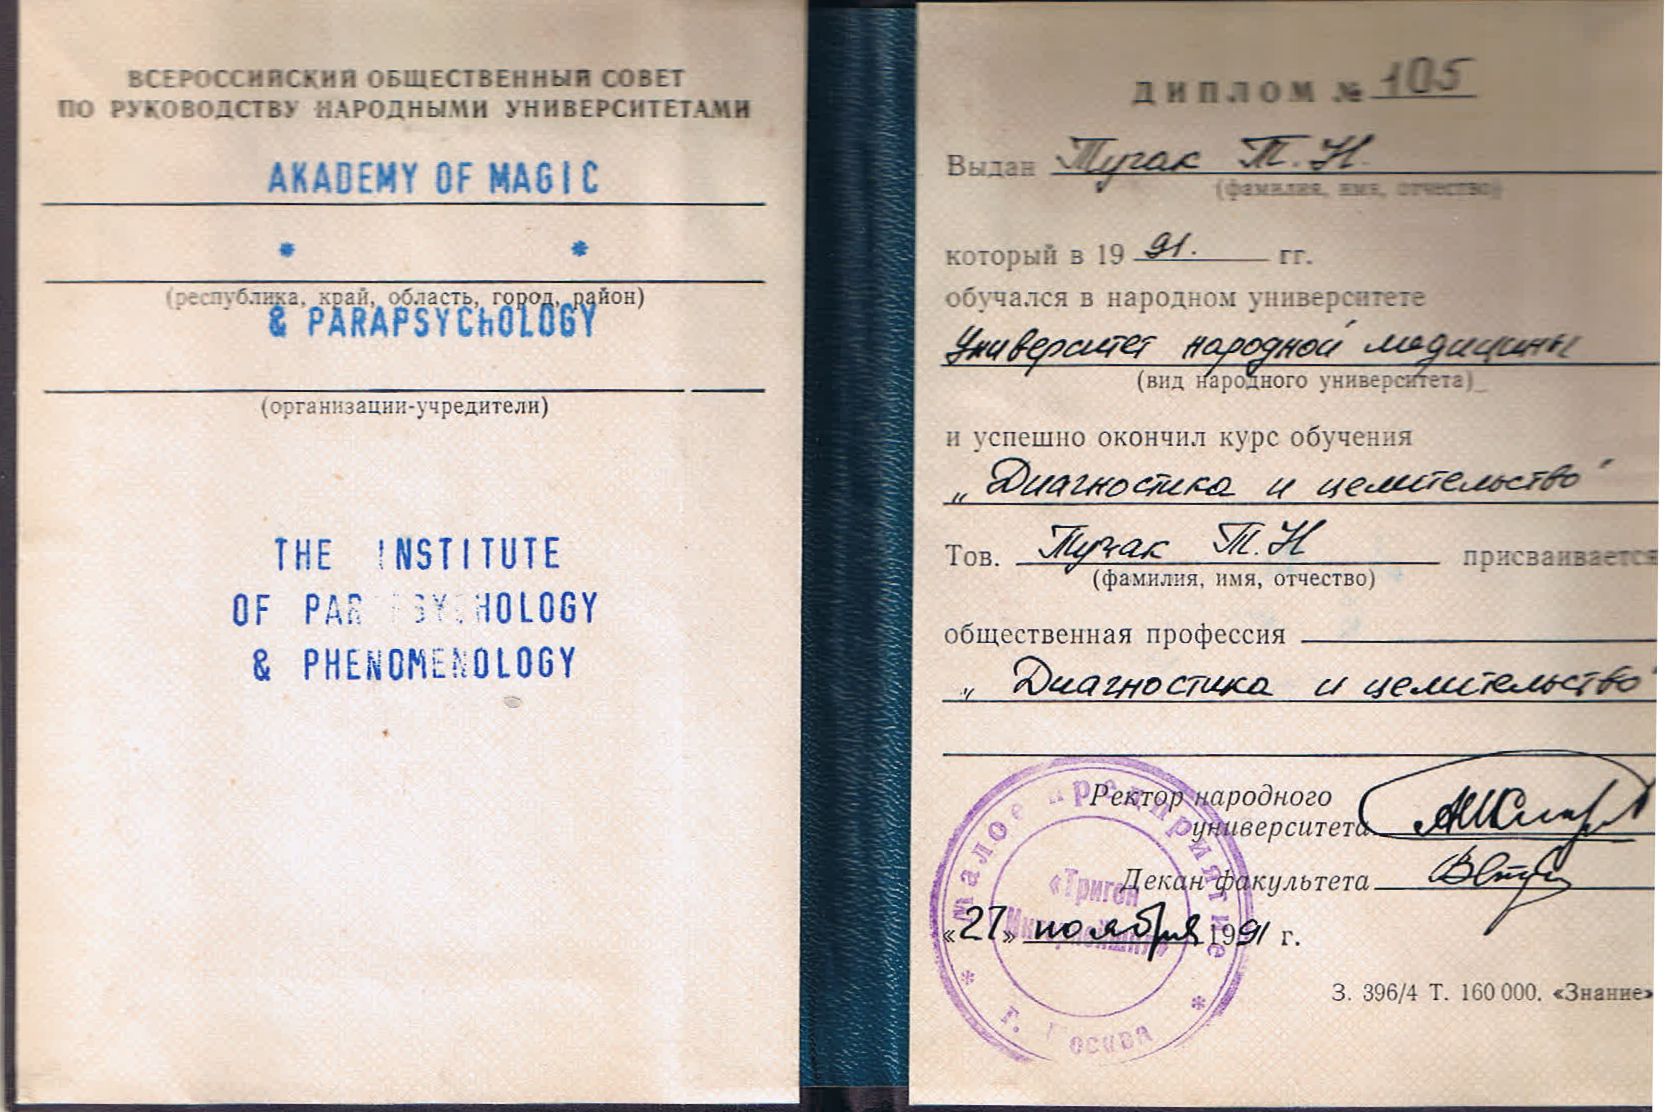 ВСЕРОССИЙСКИЙ ОБЩЕСТВЕННЫЙ СОВЕТ
ПО РУКОВОДСТВУ НАРОДНЫМИ УНИВЕРСИТЕТАМИ
AKADEMY OF MAGIC
* *
(республика, край, область, город, район)
& PARAPSYChOLOGY
(организации-учредители)
THE INSTITUTE
OF PARAPSYCHOLOGY
& PHENOMENOLOGY
ДИПЛОМ № 105
Выдан Тучак Т. Н.
(фамилия, имя, отчество)
который в 19 91. гг.
обучался в народном университете
Университет народной медицины
(вид народного университета)
и успешно окончил курс обучения
„Диагностика и целительство"
Тов. Тучак Т. Н присваивается
(фамилия, имя, отчество)
общественная профессия
„Диагностика и целительство"
Ректор народного
университета
Декан факультета
«27» ноября 1991 г.
малое предприятие
«Тригон
* г. Москва *
З. 396/4 Т. 160 000. «Знание»